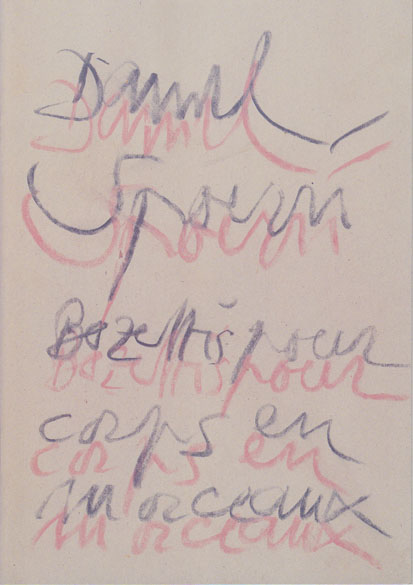 Daniel
Spoerri
Bozettis pour
corps en
morceaux